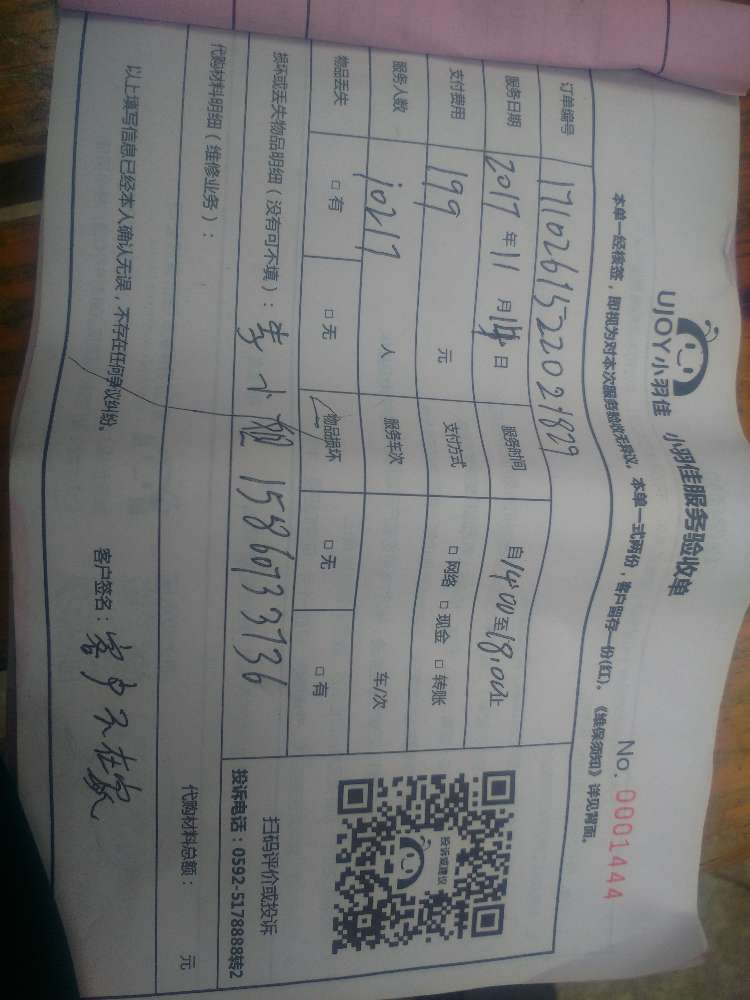 UJOY小羽佳 小羽佳服务验收单
No. 0001444
本单一经核签，即视为对本次服务验收无异议。本单一式两份，客户留存一份(红)。《维保须知》详见背面。
订单编号 17102615220 21829
服务日期 2017年11月14日 服务时间 自14:00至18:00止
支付费用 199 元 支付方式 □网络 □现金 □转账
服务人数 10217 人 服务车次 车/次
物品丢失 □有 □无 物品损坏 □无 □有
损坏或丢失物品明细（没有可不填）：李小姐 15860733736
代购材料明细（维修业务）：
代购材料总额： 元
以上填写信息已经本人确认无误，不存在任何争议纠纷。
客户签名：客户不在家
投诉或建议
扫码评价或投诉
投诉电话：0592-5178888转2